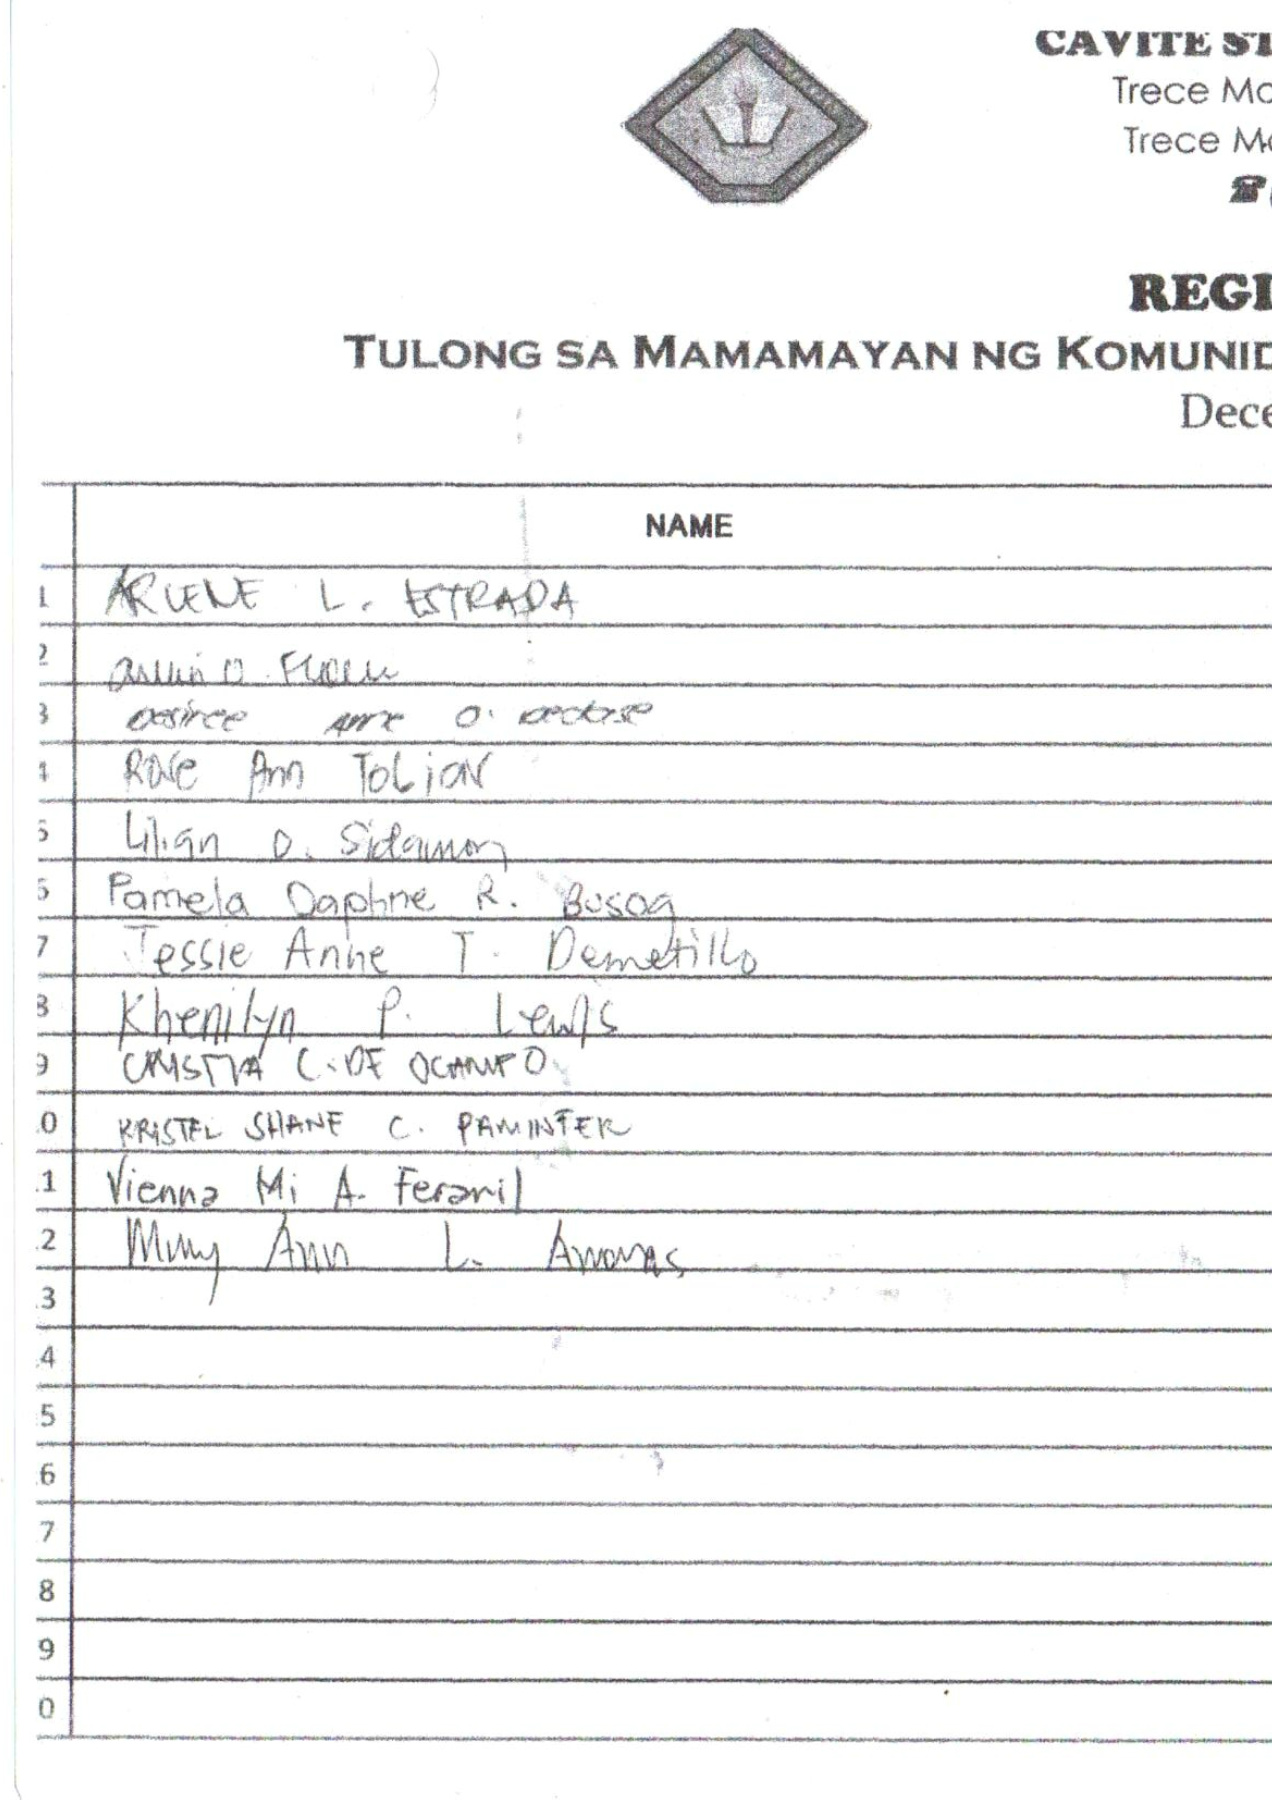 CAVITE ST
Trece Ma
Trece Ma
☎(
REGI
TULONG SA MAMAMAYAN NG KOMUNID
Dece
NAME
1 ARLENE L. ESTRADA
2 O.
3 Desiree Anne O.
4 Rose Ann Tolior
5 Lilian D. Sidamon
6 Pamela Daphne R. Busog
7 Jessie Anne T. Demetillo
8 Khenilyn P. Lewis
9 CRISTIA C. DE OCAMPO
0 KRISTEL SHANE C. PAMINTER
1 Vienna Mi A. Feranil
2 Ann L.
3
4
5
6
7
8
9
0